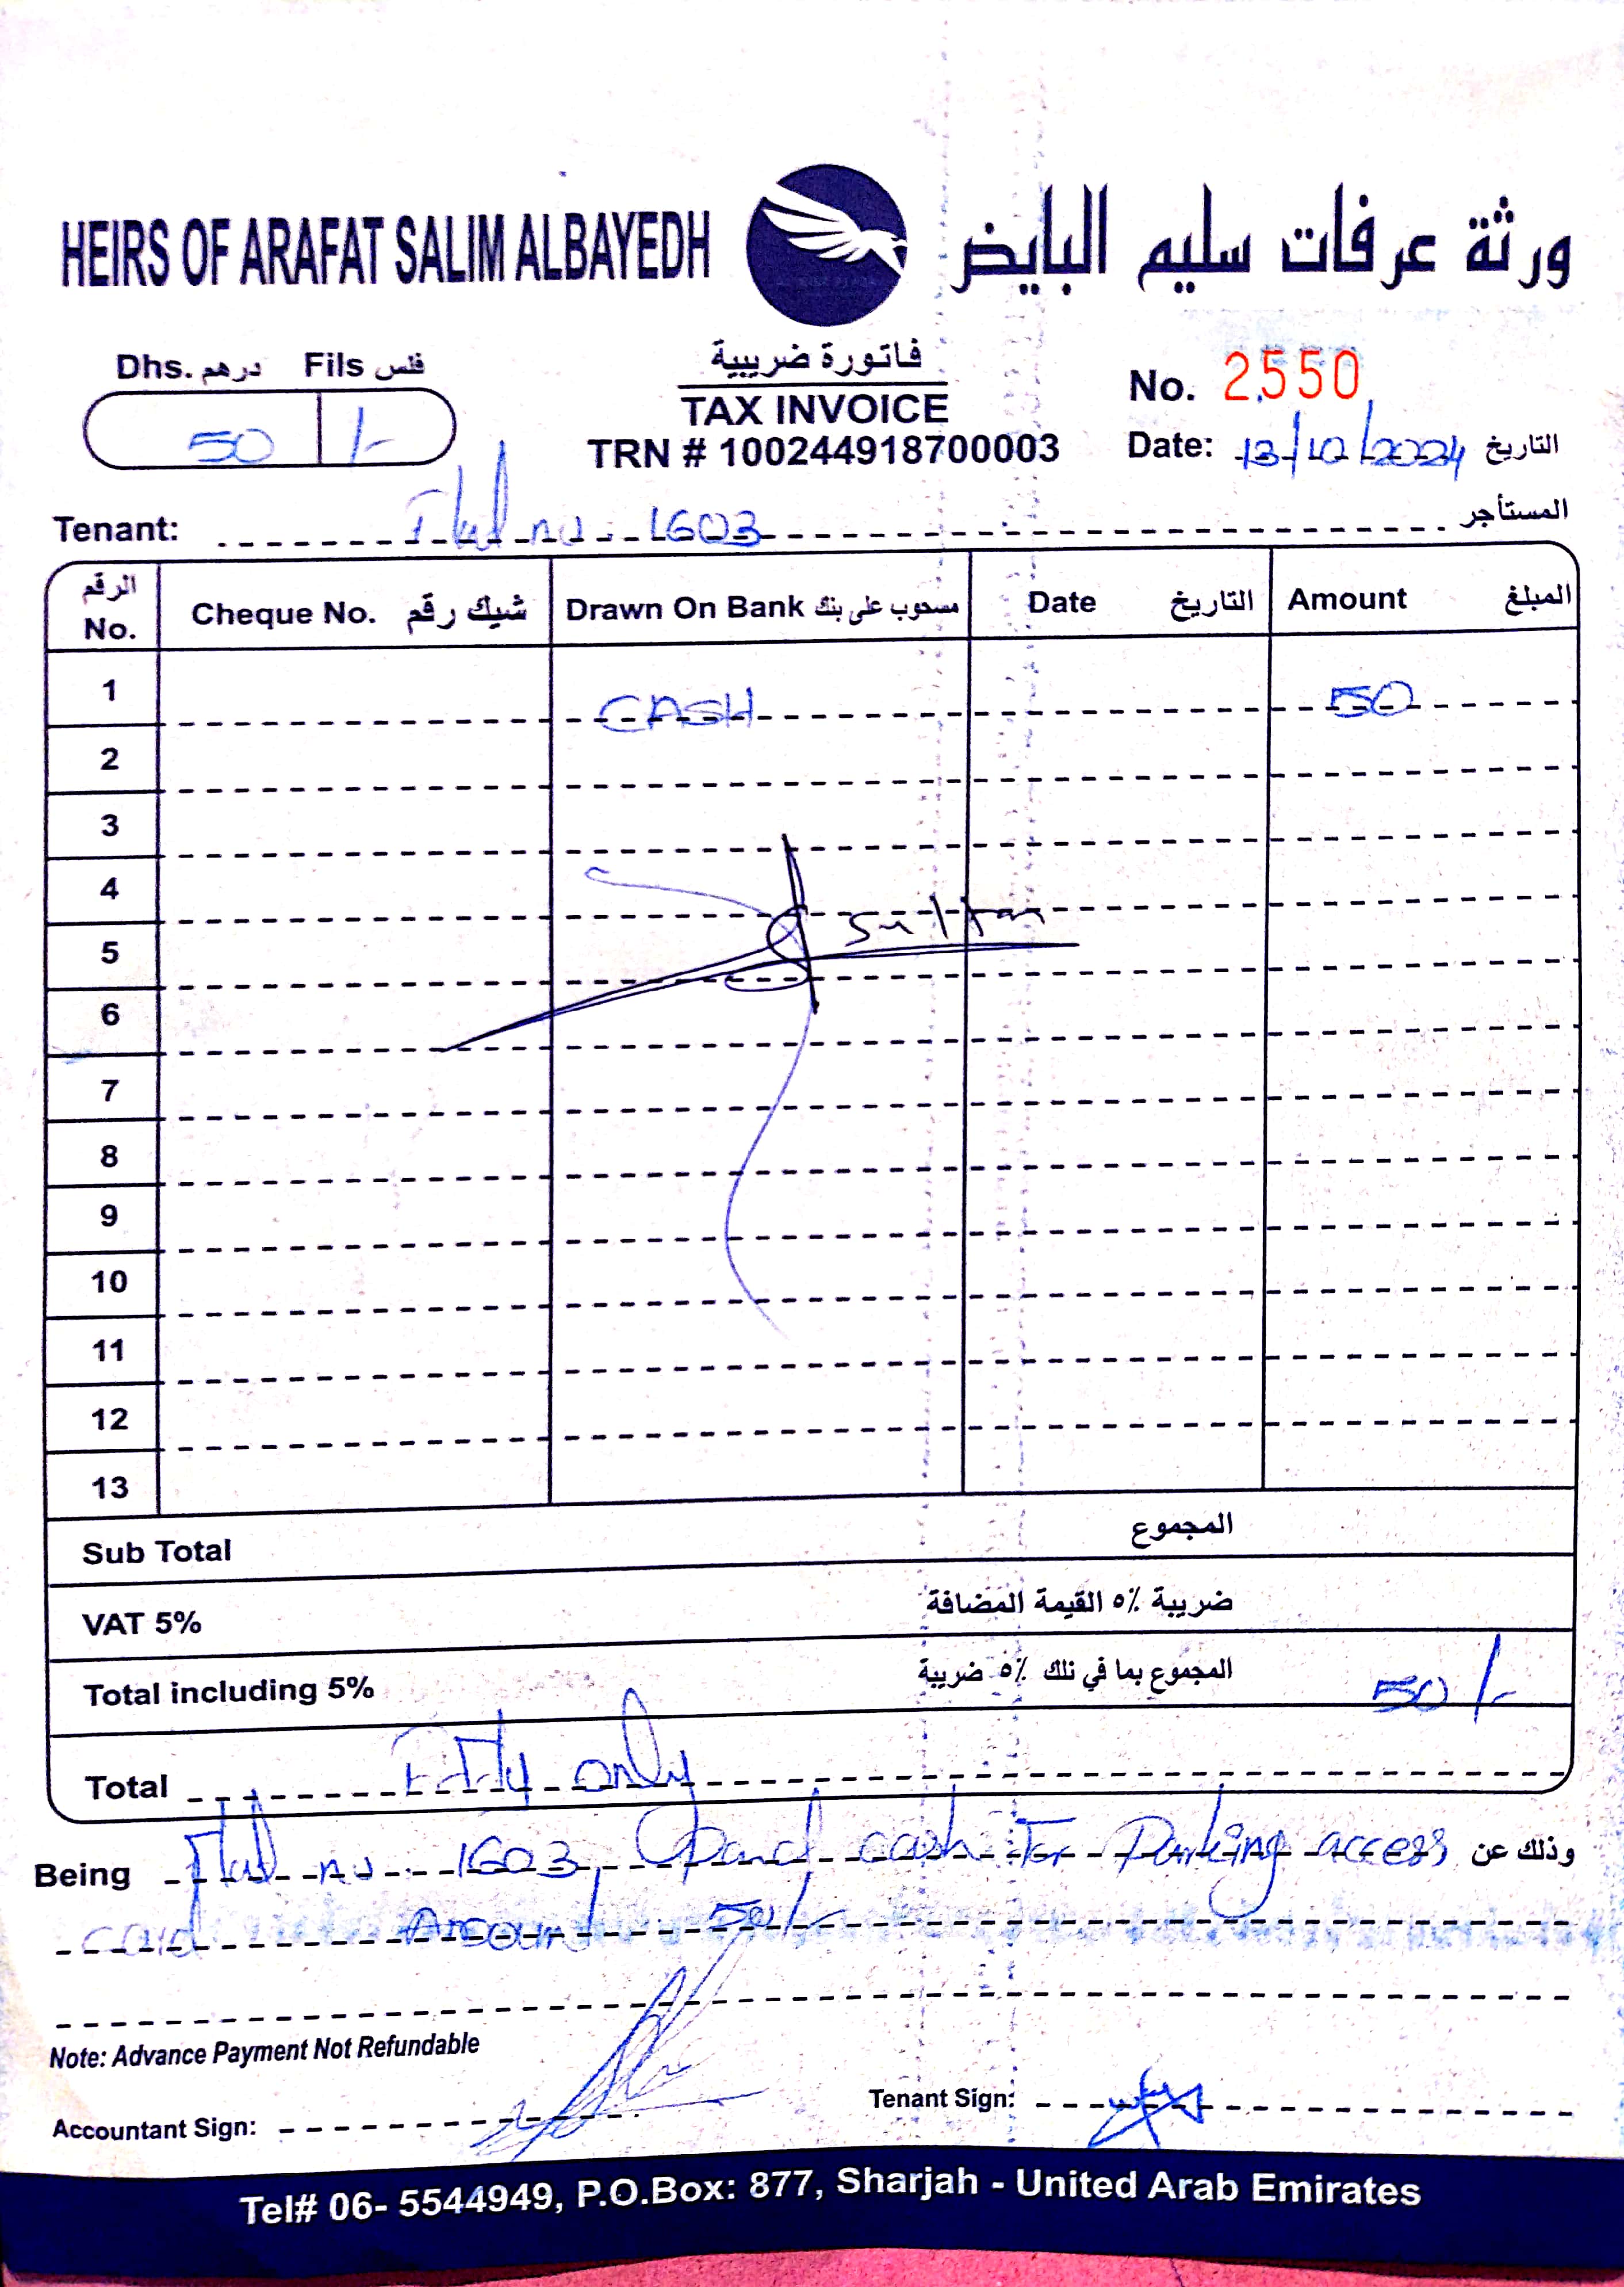 HEIRS OF ARAFAT SALIM ALBAYEDH ورثة عرفات سليم البايض
Dhs. درهم Fils فلس
50 /-
فاتورة ضريبية
TAX INVOICE
TRN # 100244918700003
No. 2550
Date: 13/10/2024 التاريخ
Tenant: Flat no. 1603 المستأجر
الرقم No. Cheque No. شيك رقم Drawn On Bank مسحوب على بنك Date التاريخ Amount المبلغ
1 CASH 50
2
3
4
Sultan
5
6
7
8
9
10
11
12
13
Sub Total المجموع
VAT 5% ضريبة ٥٪ القيمة المضافة
Total including 5% المجموع بما في ذلك ٥٪ ضريبة 50/-
Total Fifty only
Being Flat no. 1603, Paid cash For Parking access وذلك عن
card Amount 50/-
Note: Advance Payment Not Refundable
Accountant Sign: Tenant Sign:
Tel# 06- 5544949, P.O.Box: 877, Sharjah - United Arab Emirates